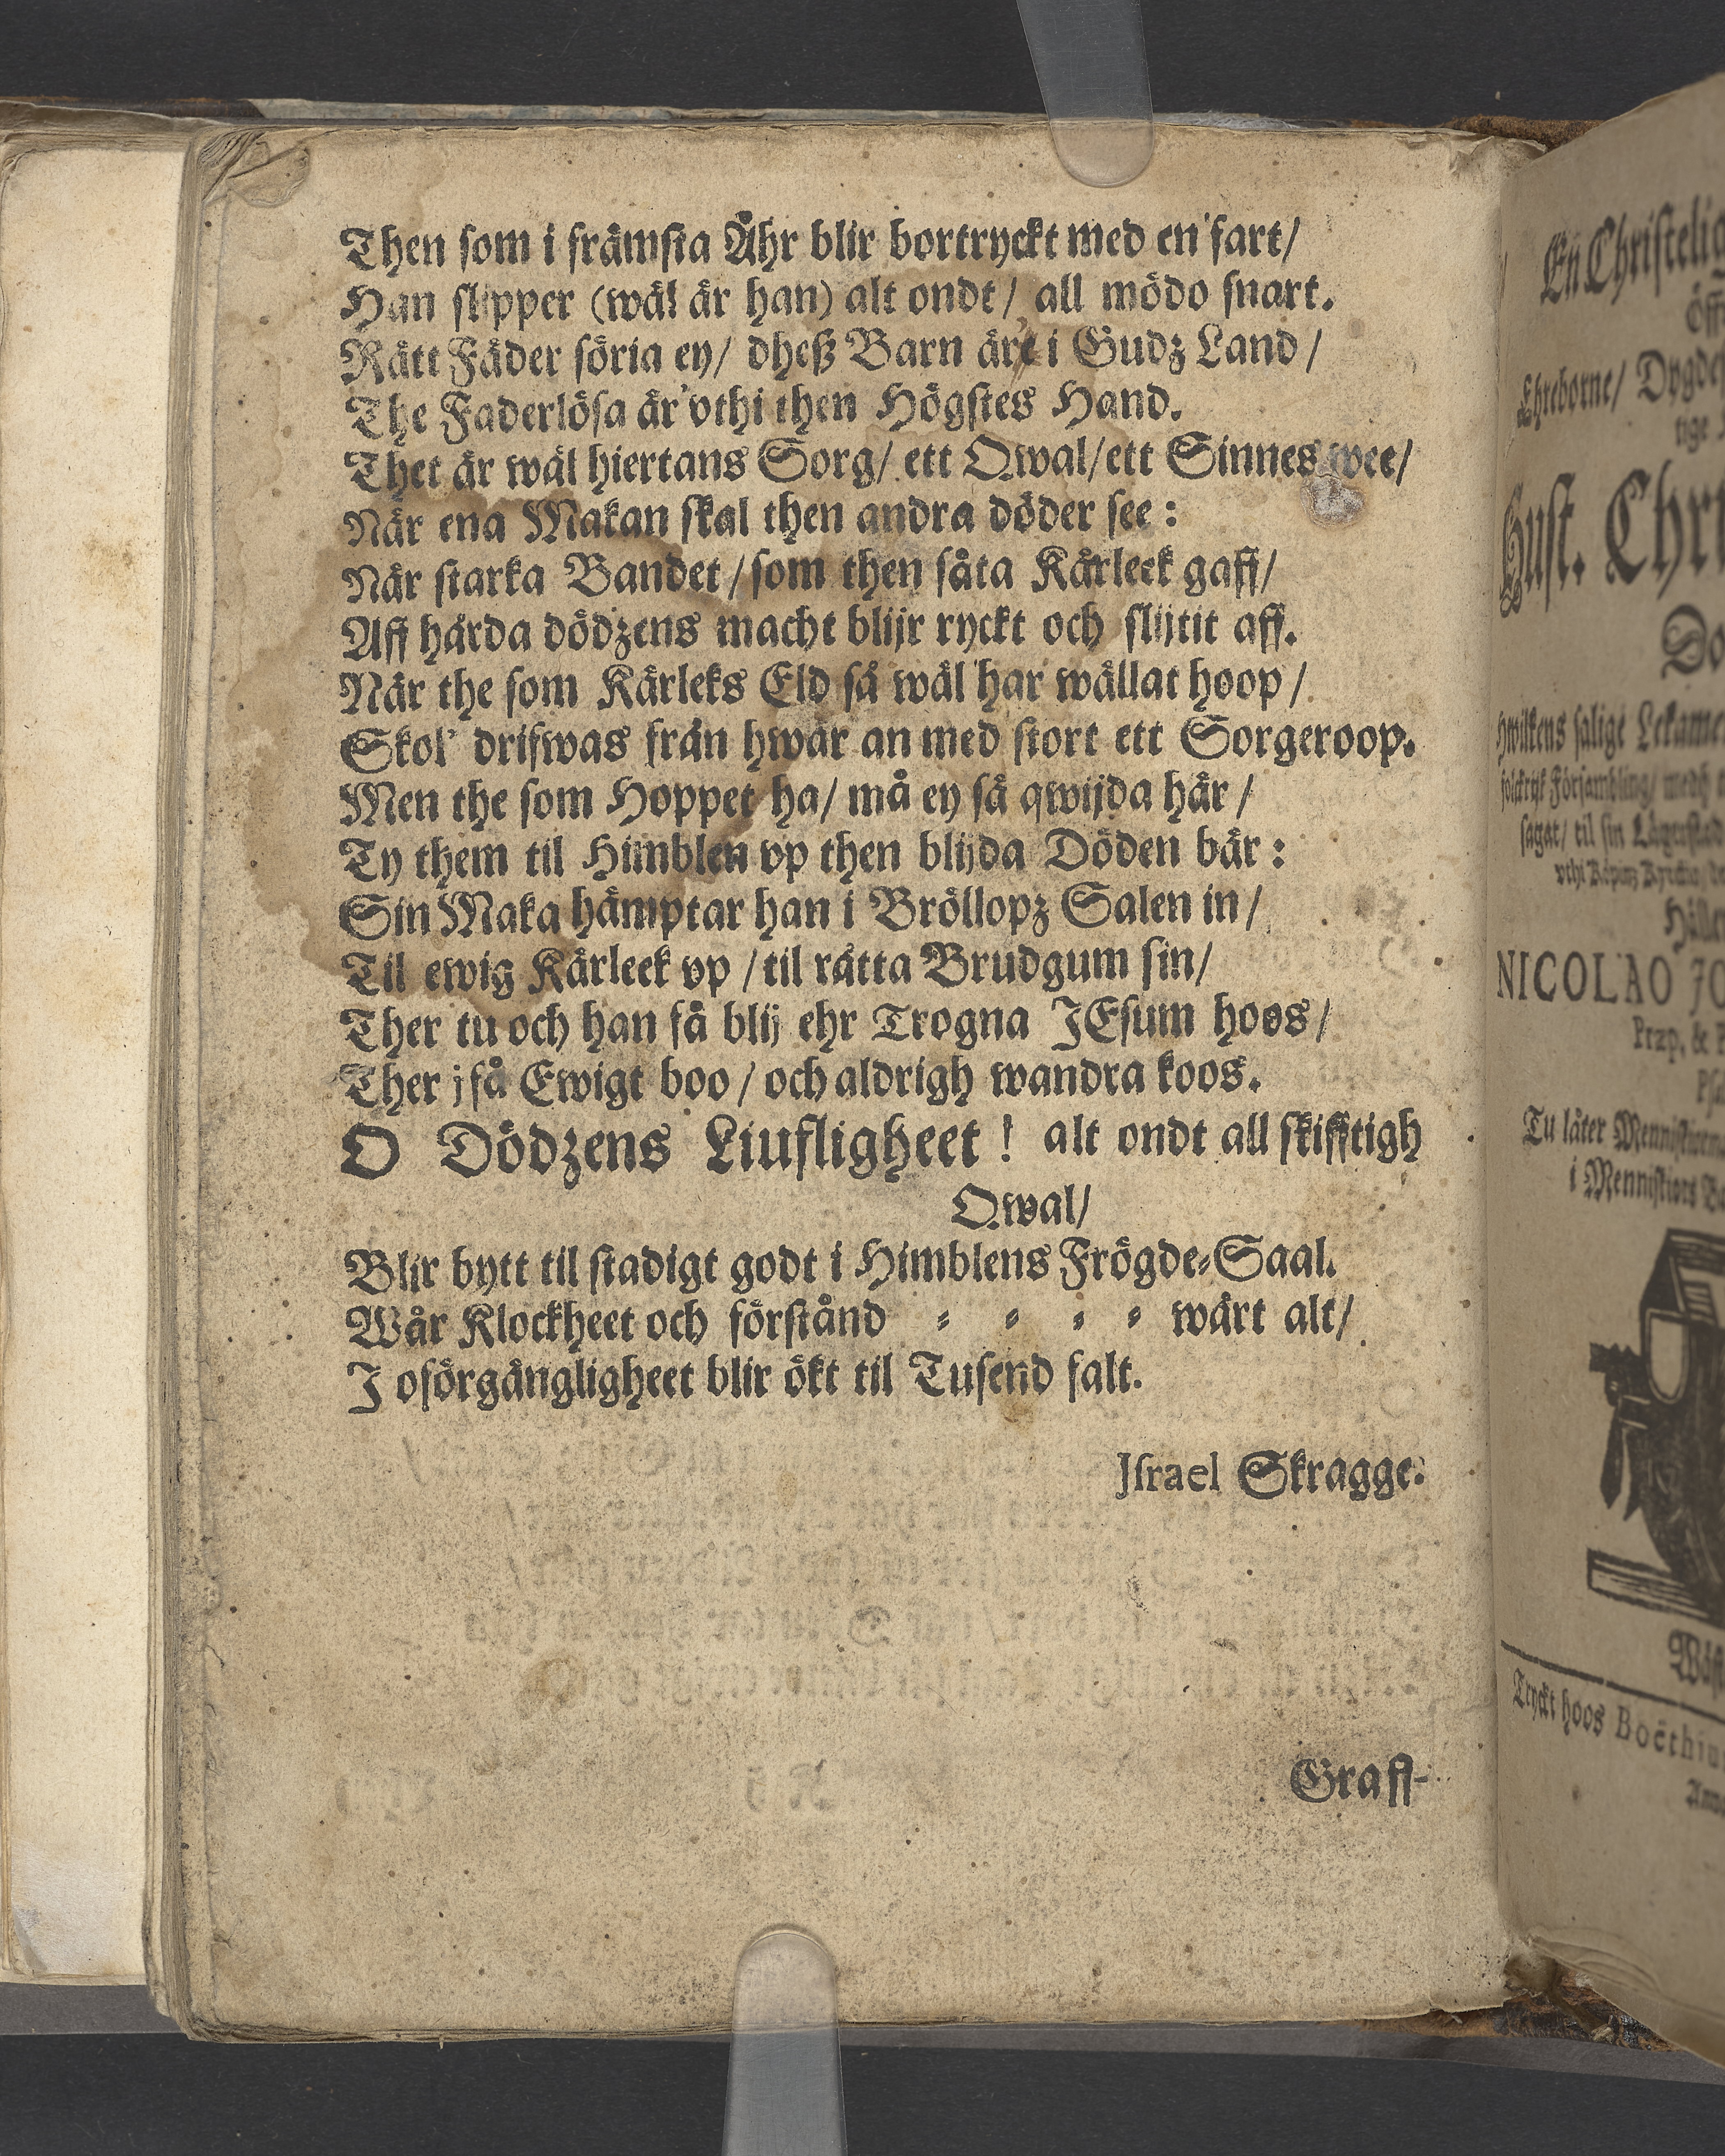 Then som i främsta Åhr blir bortryckt med en fart/
Han slipper (wäl är han) alt ondt/ all mödo snart.
Rätt Fäder söria ey/ dheß Barn är'e i Gudz Land/
The Faderlösa är'vthi then Högstes Hand.
Thet är wäl hiertans Sorg/ ett Qwal/ett Sinnes wee/
När ena Makan skal then andra döder see:
När starka Bandet/som then såta Kärleek gaff/
Aff hårda dödzens macht blijr ryckt och slijtit aff.
När the som Kärleks Eld så wäl har wällat hoop/
Skol' drifwas från hwar an med stort ett Sorgeroop.
Men the som Hoppet ha/ må ey så qwijda här/
Ty them til Himblen vp then blijda Döden bär:
Sin Maka hämptar han i Bröllopz Salen in/
Til ewig Kärleek vp/til rätta Brudgum sin/
Ther tu och han få blij ehr Trogna JEsum hoos/
Ther j få Ewigt boo/ och aldrigh wandra koos.
O Dödzens Liufligheet! alt ondt all skifftigh
Qwal/
Blir bytt til stadigt godt i Himblens Frögde-Saal.
Wår Klockheet och förstånd - - - - wårt alt/
J oförgängligheet blir ökt til Tusend falt.
Jsrael Skragge.
Graff-
En Christelig
öff
Ehreborne/ Dygde
tige
Hust. Chri
Do
Hwilkens salige Lekame
folckrijk Försambling/ medh
sagat/ til sin Lägerstad
NICOLAO JO
Præp. & P
Psa
Tu låter Menniskiorna
i Menniskiors Ba
Wäst
Tryckt hoos Boëthiu
Anno